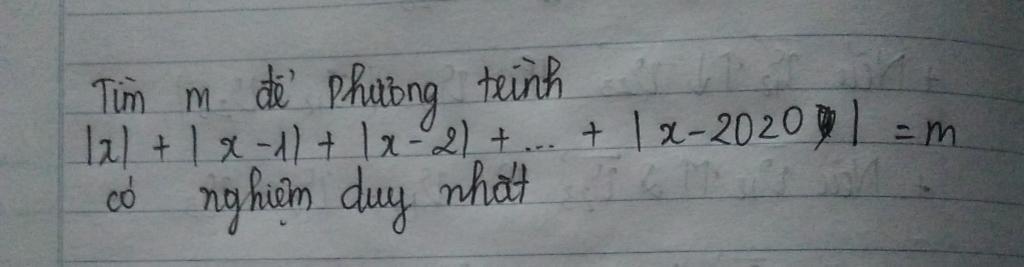 Tìm m để phương trình
|x| + |x-1| + |x-2| + ... + |x-2020| = m
có nghiệm duy nhất